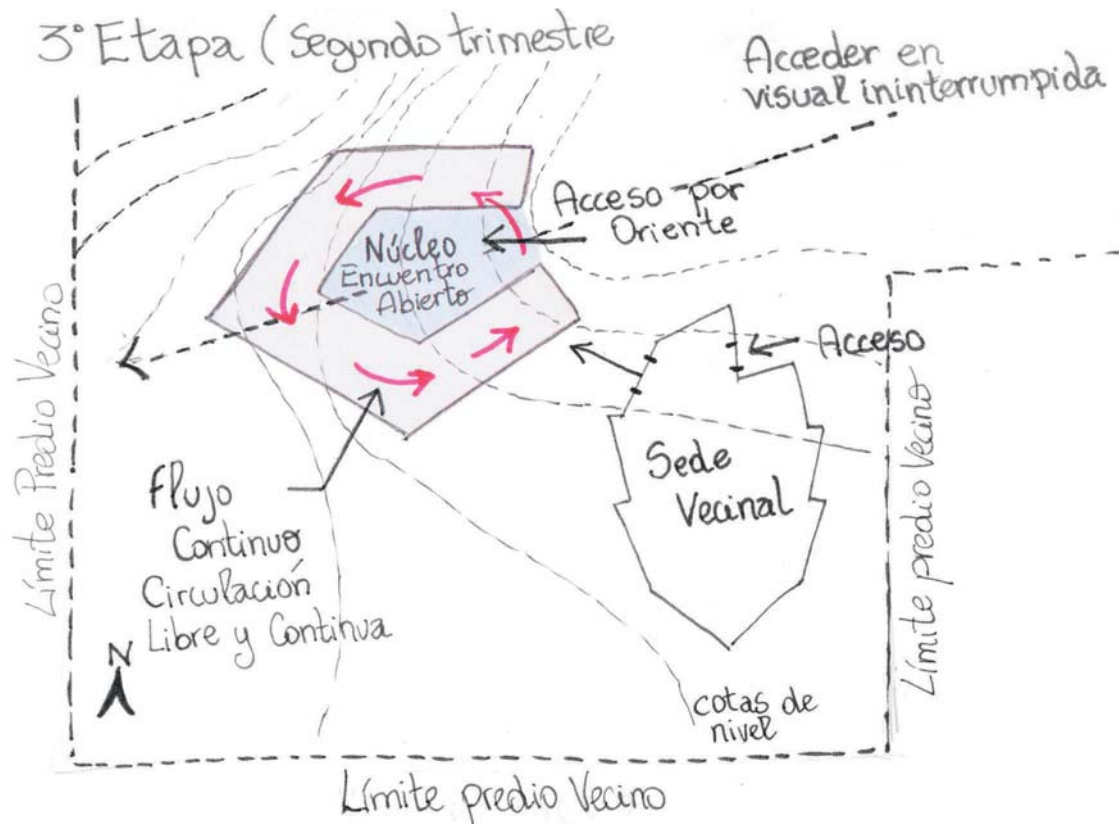 3° Etapa (Segundo trimestre
Acceder en
visual ininterrumpida
Acceso por
Oriente
Núcleo
Encuentro
Abierto
Acceso
Límite Predio Vecino
Sede
Vecinal
Límite predio Vecino
Flujo
Continuo
Circulación
Libre y Continua
N
cotas de
nivel
Límite predio Vecino